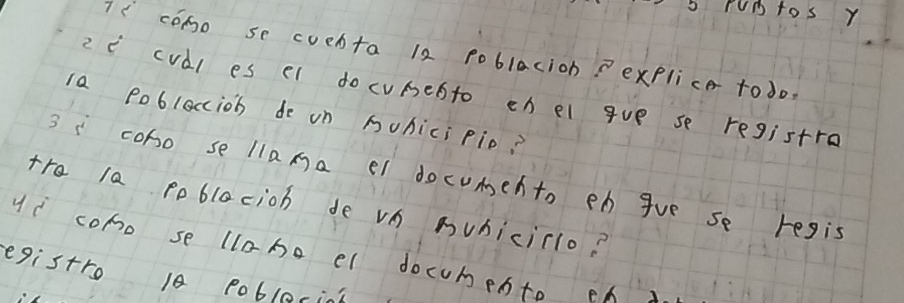 5 puntos y
1 ¿ cómo se cuenta la poblacion? explica todo.
2 ¿ cual es el documento en el que se registra
la poblaccion de un municipio?
3 ¿ como se llama el documento en que se regis
tra la poblacion de un municiclo?
4 ¿ como se llama el documento en
registra la poblacion